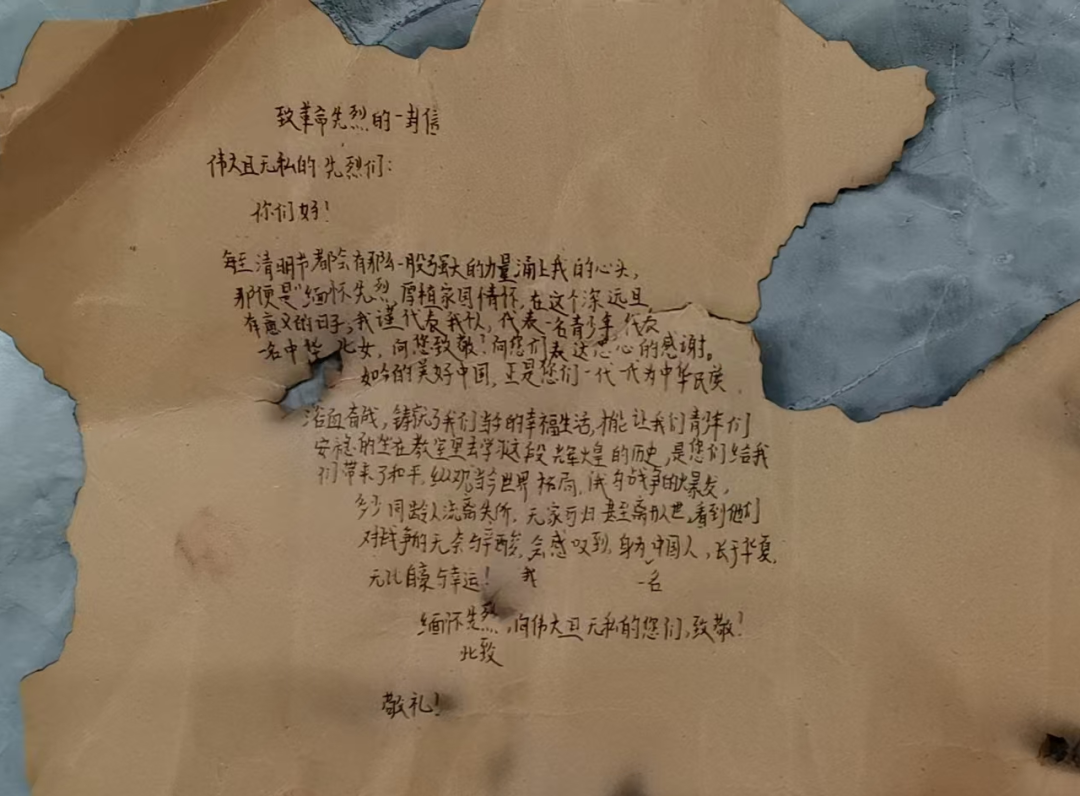 致革命先烈的一封信
伟大且无私的先烈们:
你们好!
每至清明节都会有那么一股强大的力量涌上我的心头,
那便是“缅怀先烈,厚植家国情怀,在这个深远且
有意义的日子,我谨代表我个人,代表一名青少年,代表
一名中华儿女,向您致敬!向您们表达忠心的感谢。
如今的美好中国,正是您们一代一代为中华民族
浴血奋战,铸就了我们当今的幸福生活,才能让我们青少年们
安稳的坐在教室里去学习这段辉煌的历史,是您们给我
们带来了和平,纵观当今世界格局,战争的爆发,
多少同龄人流离失所,无家可归甚至离开人世,看到他们
对战争的无奈与辛酸,会感叹到,身为中国人,长于华夏,
无比自豪与幸运! 我 一名
缅怀先烈,向伟大且无私的您们,致敬!
此致
敬礼!